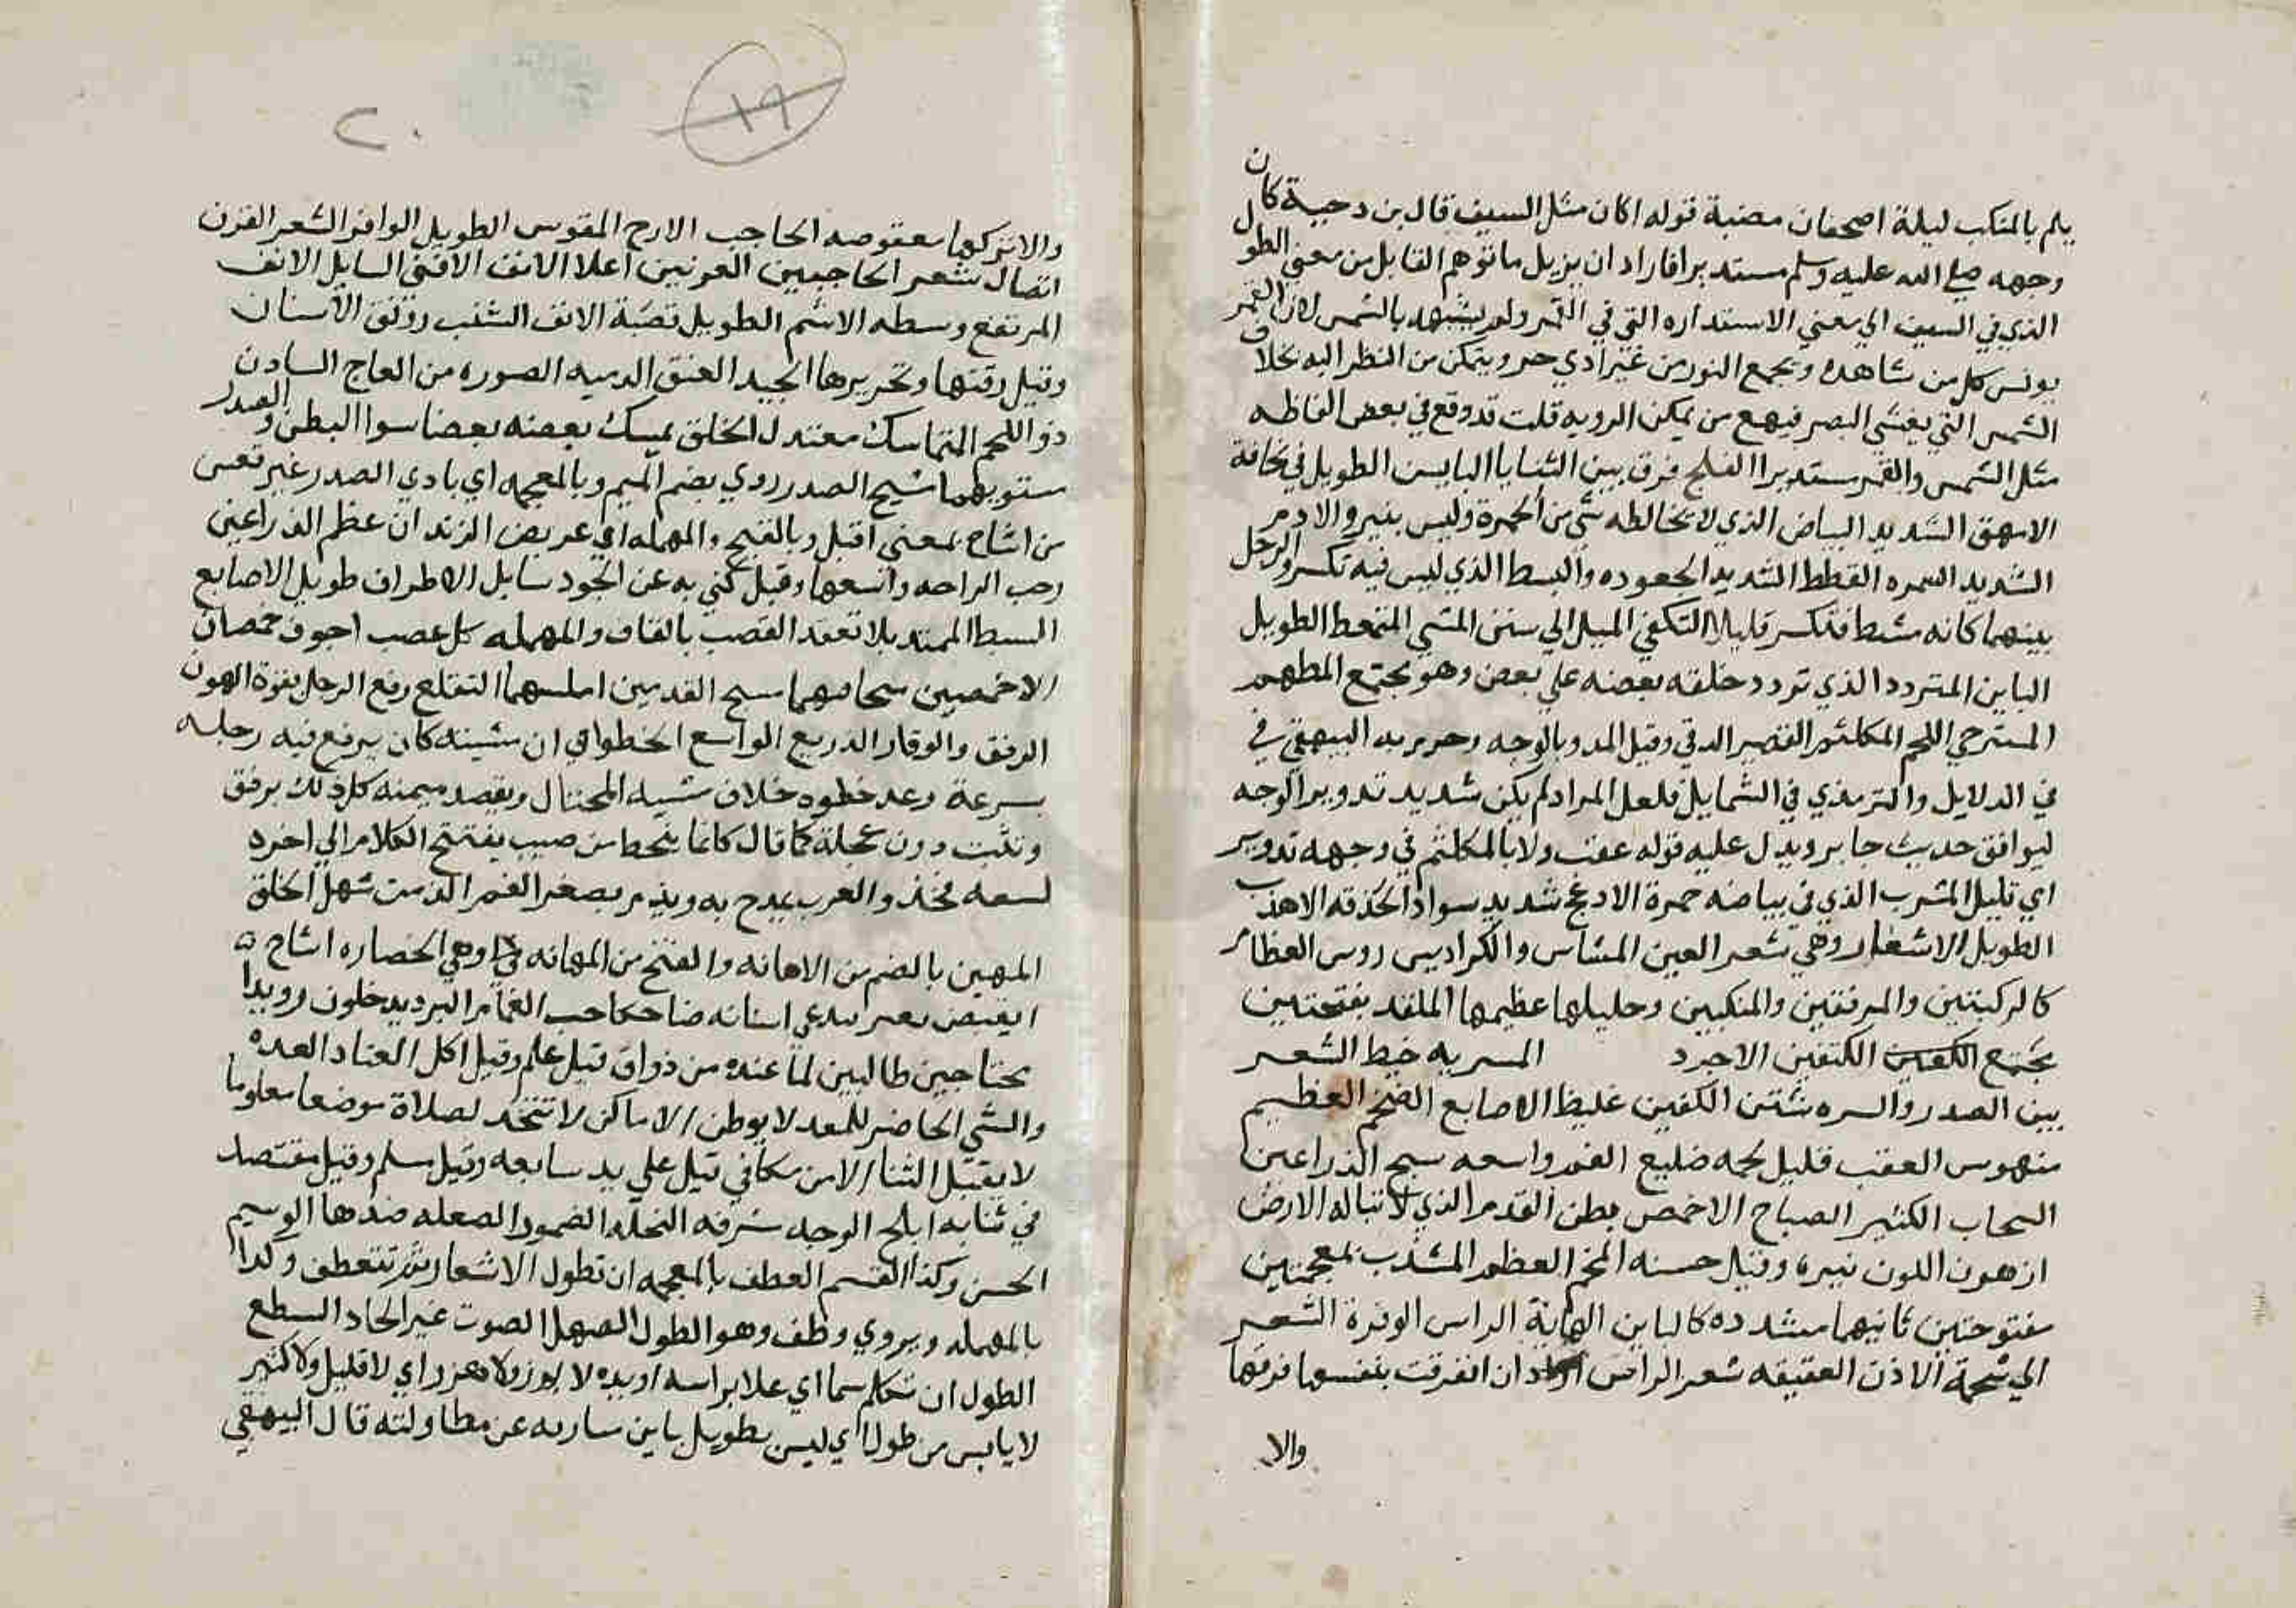 يلم بالمنكب ليلة اضحيان مضية قوله اكان مثل السيف قال بن دحية كان
وجهه صلي الله عليه وسلم مستديرا فاراد ان يزيل ما توهم القايل من معني الطول
الذي في السيف الي معني الاستداره التي في القمر ولم يشبهه بالشمس لان القمر
يونس كل من شاهده ويجمع النور من غير اذي حر ويتمكن من النظر اليه بخلاف
الشمس التي يغشي البصر فيمنع من يمكن الرويه قلت قد وقع في بعض الفاظه
مثل الشمس والقمر مستديرا الفلج فرق بين الثنايا الباين الطويل في نحافة
الامهق الشديد البياض الذي لا تخالطه شي من الحمرة وليس بنير والادم
الشديد السمره القطط الشديد الجعوده والبسط الذي ليس فيه تكسر والرجل
بينهما كانه مشط فتكسر قليلا التكفي الميل الي سنن المشي المتمعط الطويل
الباين المتردد الذي تردد خلقه بعضه علي بعض وهو مجتمع المطهم
المسترخي اللحم المكلثم القصير الذقن وقيل المدور الوجه وحرره البيهقي في
في الدلايل والترمذي في الشمايل فلعل المراد لم يكن شديد تدوير الوجه
ليوافق حديث جابر ويدل عليه قوله عقب ولا بالمكلثم في وجهه تدوير
اي قليل المشرب الذي في بياضه حمرة الادعج شديد سواد الحدقه الاهدب
الطويل الاشفار وهي شعر العين المشاس والكراديس روس العظام
كالركبتين والمرفقين والمنكبين وجليلها عظيمها الملقد بفتحتين
مجتمع الكتفين الاجرد المسربه خيط الشعر
بين الصدر والسره شثن الكفين غليظ الاصابع الضخم العظيم
منهوس العقب قليل لحمه ضليع الفم واسعه سبح الذراعين
السحاب الكثير الصباح الاخمص بطن القدم الذي لا تناله الارض
ازهر اللون نيره وقيل حسنه الفخم العظم المشذب بمعجمتين
مفتوحتين ثانيهما مشدده كالباين الهامة الراس الوفرة الشعر
الي شحمة الاذن العقيقه شعر الراس ان انفرقت بنفسها فرقها
والا
١٩
٢٠
والا تركها معقوصه الحاجب الازج المقوس الطويل الوافر الشعر القرن
اتصال شعر الحاجبين العرنين اعلا الانف الاقني السايل الانف
المرتفع وسطه الاشم الطويل قصبة الانف الشنب رونق الاسنان
وقيل رقتها وتحريرها الجيد العنق الدميه الصوره من العاج البادن
ذو اللحم المتماسك معتدل الخلق يمسك بعضه بعضا سوا البطن والصدر
مستويهما مشيح الصدر روي بضم الميم وبالمعجمه اي بادي الصدر غير قعس
من اشاح بمعني اقبل وبالفتح والمهمله اي عريض الزندان عظم الذراعين
رحب الراحه واسعها وقيل كني به عن الجود سايل الاطراف طويل الاصابع
السبط الممتد بلا تعقد القصب بالقاف والمهمله كل عصب اجوف خمصان
الاخمصين متجافيهما مسيح القدمين املسهما التقلع رفع الرجل بقوة الهون
الرفق والوقار الذريع الواسع الخطو اي ان مشيته كان يرفع فيه رجليه
بسرعة ويمد خطوه خلاف مشيه المختال ويقصد سمته كل ذلك برفق
وتثبت دون عجلة كما قال كانما ينحط من صبب يفتتح الكلام الي اخره
لسعه فمه والعرب يمدح به ويذم بصغر الفم الدمث سهل الخلق
المهين بالضم من الاهانه والفتح من المهانه وهي الحقاره اشاح
انقبض يفتر يبدي اسنانه ضاحكا حب الغمام البرد يدخلون روادا
محتاجين طالبين لما عنده من ذواق قيل علم وقيل اكل العتاد العده
والشي الحاضر المعد لا يوطن الاماكن لا تتخذ لصلاة موضعا معلوما
لا يقبل الثنا الا من مكافي قيل علي يد سابقه وقيل مسلم وقيل مقتصد
في ثنايه ابلج الوجه مشرقه النحله الضمور والصعله ضدها الوسيم
الحسن وكذا القسم الغطف بالمعجمه ان تطول الاشعار ثم تتعطف وكذا
بالمهمله ويروي وطف وهو الطول الصهل الصوت غير الحاد السطع
الطول ان تكلم سما اي علا براسه او يده لا نزر ولا هزر اي لا قليل ولا كثير
لا يابس من طول اي ليس بطويل باين ساربه عن مطاولته قال البيهقي